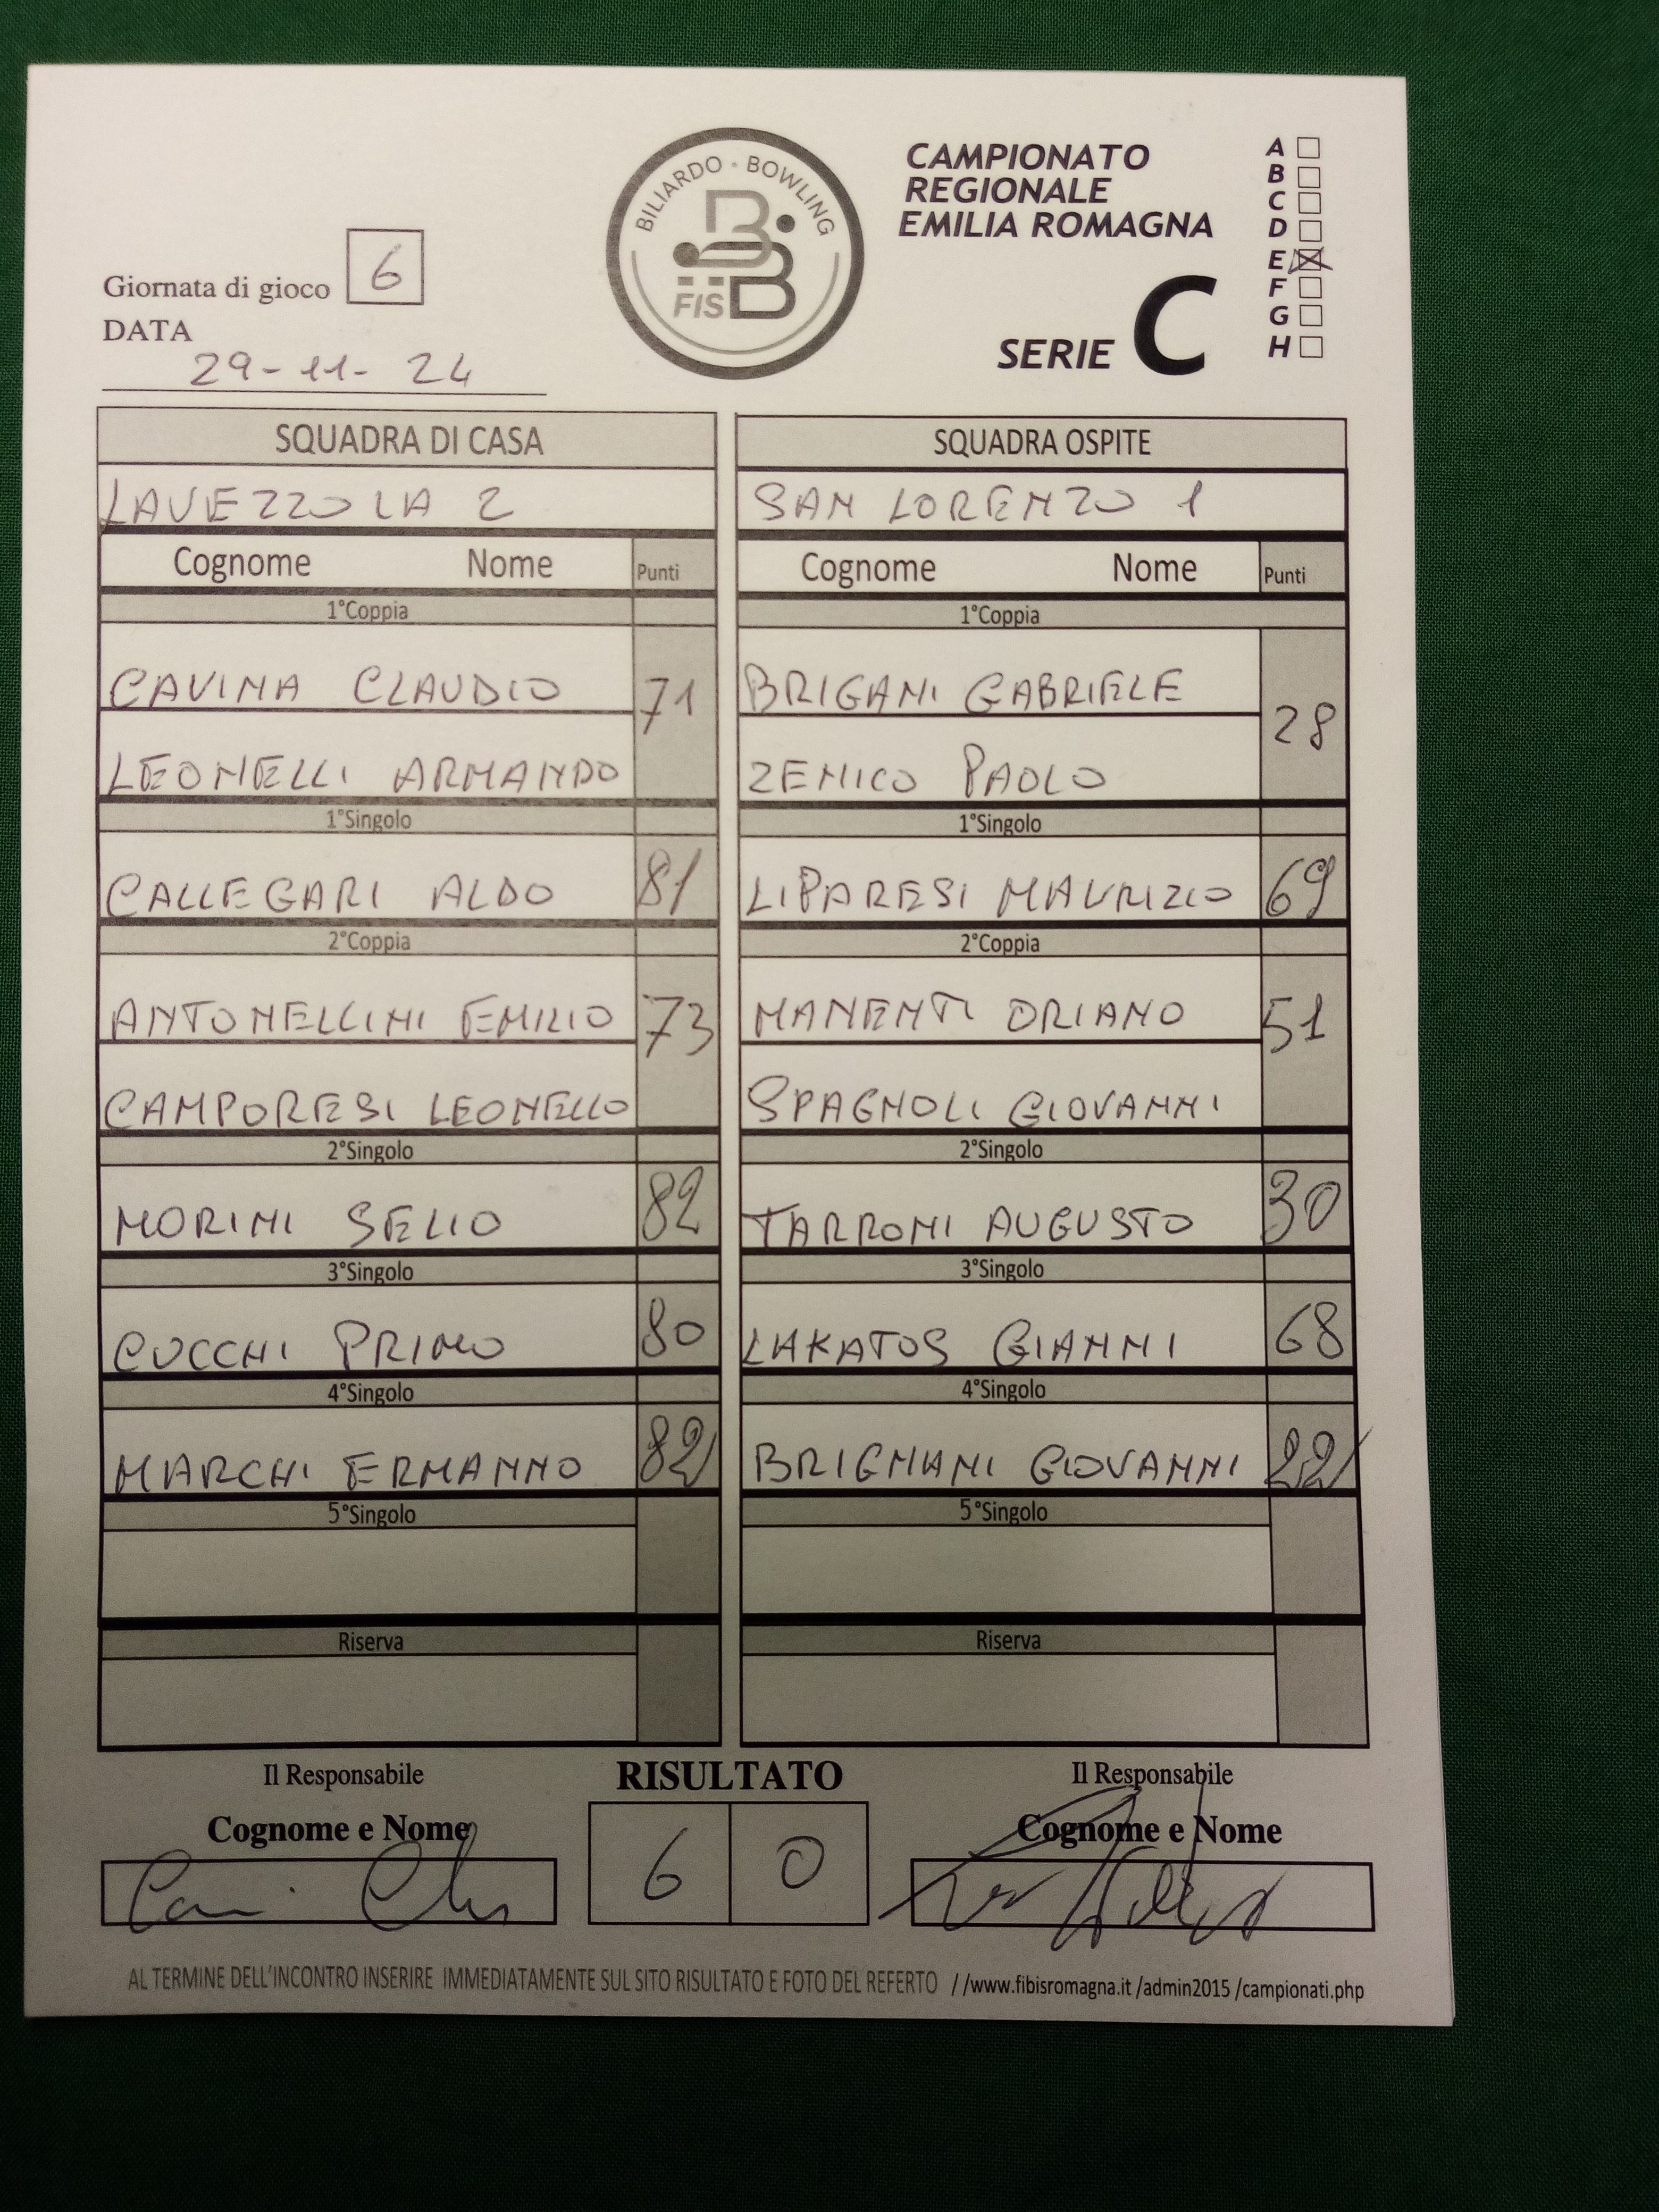 BILIARDO · BOWLING
FISBB
CAMPIONATO
REGIONALE
EMILIA ROMAGNA
SERIE C
A
B
C
D
E
F
G
H
Giornata di gioco 6
DATA
29-11-24
SQUADRA DI CASA
LAVEZZOLA 2
Cognome Nome Punti
1°Coppia
CAVINA CLAUDIO 71
LEONELLI ARMANDO
1°Singolo
CALLEGARI ALDO 81
2°Coppia
ANTONELLINI EMILIO 73
CAMPORESI LEONELLO
2°Singolo
MORINI SELIO 82
3°Singolo
CUCCHI PRIMO 80
4°Singolo
MARCHI ERMANNO 82
5°Singolo
Riserva
SQUADRA OSPITE
SAN LORENZO 1
Cognome Nome Punti
1°Coppia
BRIGANI GABRIELE 28
ZENICO PAOLO
1°Singolo
LIPARESI MAURIZIO 69
2°Coppia
MANENTI ORIANO 51
SPAGNOLI GIOVANNI
2°Singolo
TARRONI AUGUSTO 30
3°Singolo
LAKATOS GIANNI 68
4°Singolo
BRIGNANI GIOVANNI 22
5°Singolo
Riserva
Il Responsabile
Cognome e Nome
RISULTATO
6 0
Il Responsabile
Cognome e Nome
AL TERMINE DELL'INCONTRO INSERIRE IMMEDIATAMENTE SUL SITO RISULTATO E FOTO DEL REFERTO //www.fibisromagna.it /admin2015 /campionati.php